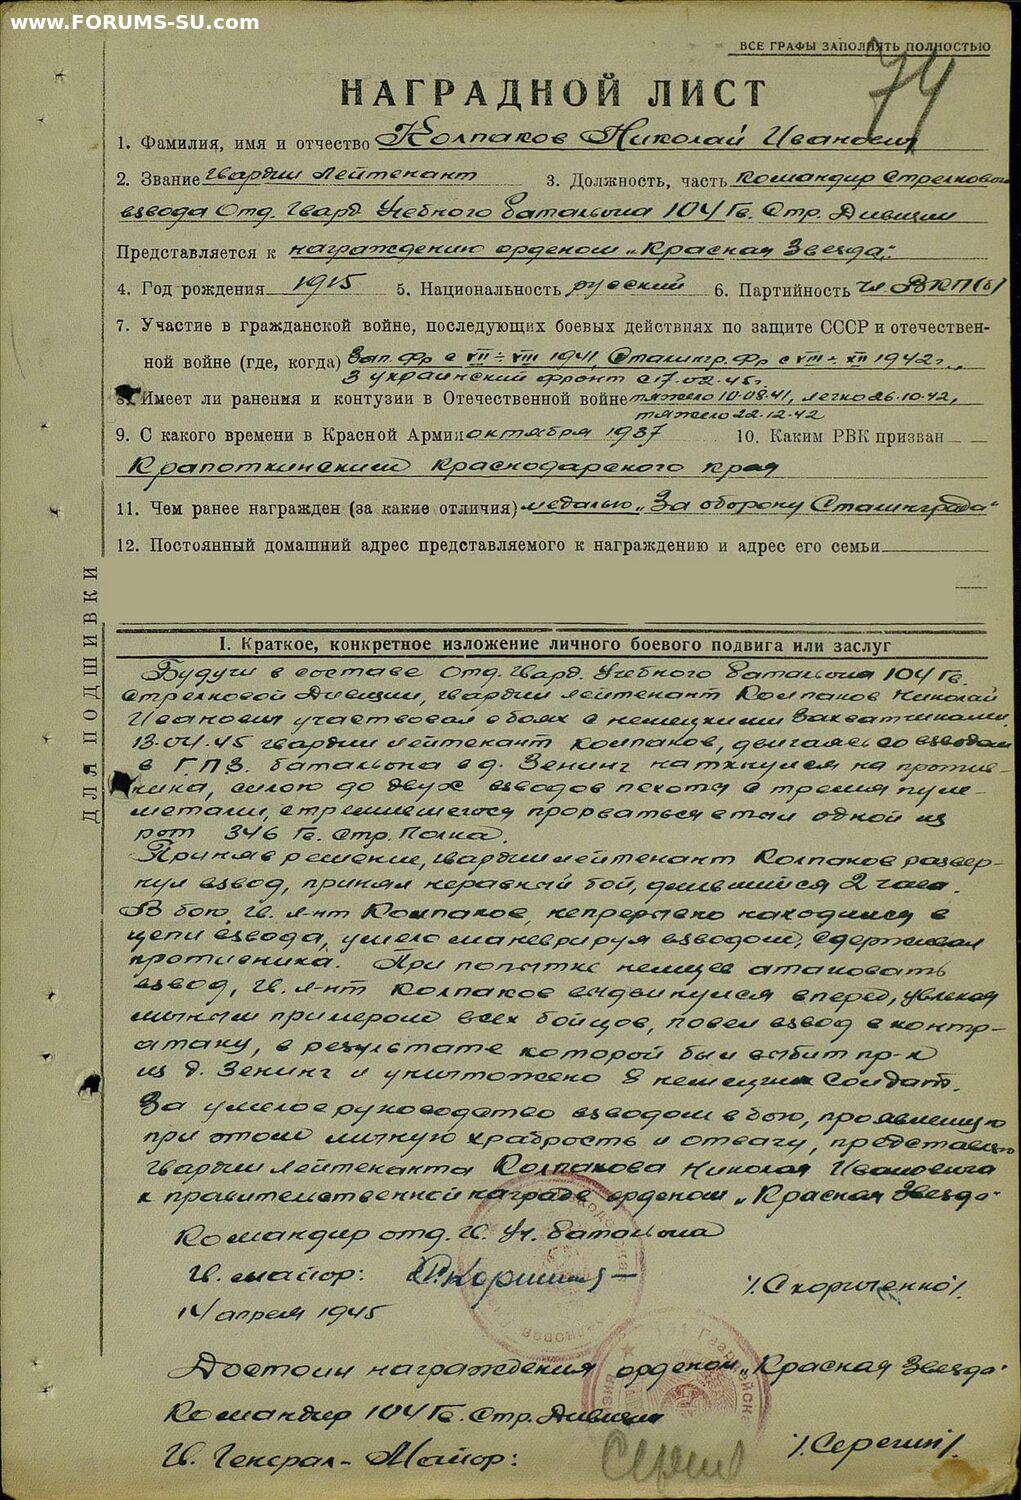 www.FORUMS-SU.com
ВСЕ ГРАФЫ ЗАПОЛНЯТЬ ПОЛНОСТЬЮ
74
НАГРАДНОЙ ЛИСТ
1. Фамилия, имя и отчество Колпаков Николай Иванович
2. Звание гвардии лейтенант 3. Должность, часть командир стрелкового
взвода Отд. Гвард. Учебного Батальона 104 Гв. Стр. Дивизии
Представляется к награждению орденом „Красная Звезда“
4. Год рождения 1915 5. Национальность русский 6. Партийность чл ВКП(б)
7. Участие в гражданской войне, последующих боевых действиях по защите СССР и отечествен-
ной войне (где, когда) Зап. Фр с VII÷VIII 1941, Сталингр. Фр с VIII÷XII 1942г.,
3 украинский фронт с 17.02.45г.
8. Имеет ли ранения и контузии в Отечественной войне тяжело 10.08.41, легко 26.10.42,
тяжело 22.12.42
9. С какого времени в Красной Армии октября 1937 10. Каким РВК призван
Крапоткинским Краснодарского края
11. Чем ранее награжден (за какие отличия) медалью „За оборону Сталинграда“
12. Постоянный домашний адрес представляемого к награждению и адрес его семьи
ДЛЯ ПОДШИВКИ
I. Краткое, конкретное изложение личного боевого подвига или заслуг
Будучи в составе Отд. Гвард. Учебного Батальона 104 Гв.
Стрелковой Дивизии, гвардии лейтенант Колпаков Николай
Иванович участвовал в боях с немецкими захватчиками.
13.04.45 гвардии лейтенант Колпаков, двигаясь со взводом
в Г.П.З. батальона в д. Зенинг наткнулся на против-
ника, силою до двух взводов пехоты с тремя пуле-
метами, стремившегося прорваться в тыл одной из
рот 346 Гв. Стр. Полка.
Приняв решение, гвардии лейтенант Колпаков развер-
нул взвод, принял неравный бой, длившийся 2 часа.
В бою, гв. л-нт Колпаков, непрерывно находился в
цепи взвода, умело маневрируя взводом, сдерживал
противника. При попытке немцев атаковать
взвод, гв. л-нт Колпаков выдвинулся вперед, увлекая
личным примером всех бойцов, повел взвод в контр-
атаку, в результате которой был выбит пр-к
из д. Зенинг и уничтожено 8 немецких солдат.
За умелое руководство взводом в бою, проявленную
при этом личную храбрость и отвагу, представляю
гвардии лейтенанта Колпакова Николая Ивановича
к правительственной награде орденом „Красная Звезда“
Командир отд. Гв. Уч. батальона
Гв. майор: /Скориченко/.
14 апреля 1945
Достоин награждения орденом „Красная Звезда“
Командир 104 Гв. Стр. Дивизии
Гв. Генерал-Майор: Серегин /Серегин/.